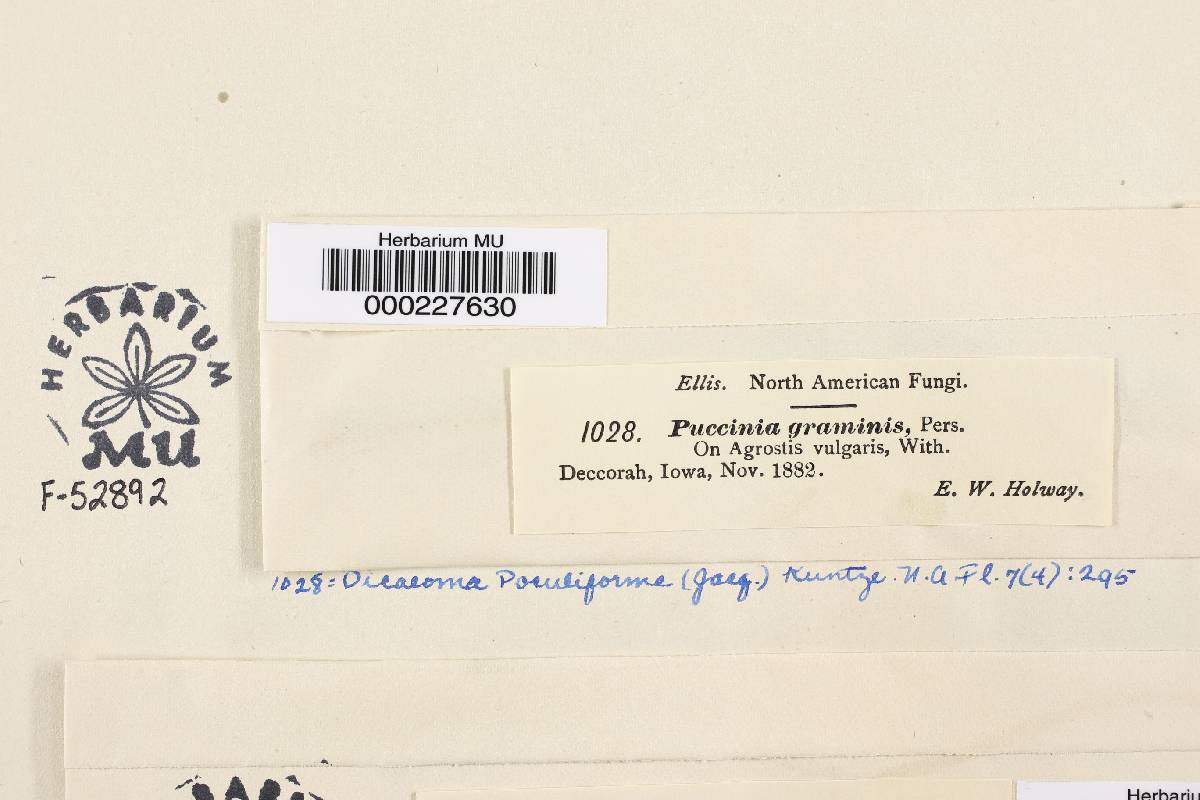 Herbarium MU
000227630
HERBARIUM
MU
F-52892
Ellis. North American Fungi.
1028. Puccinia graminis, Pers.
On Agrostis vulgaris, With.
Deccorah, Iowa, Nov. 1882.
E. W. Holway.
1028 = Dicaeoma Poculiforme (Jacq.) Kuntze. N.A Fl. 7(4):295